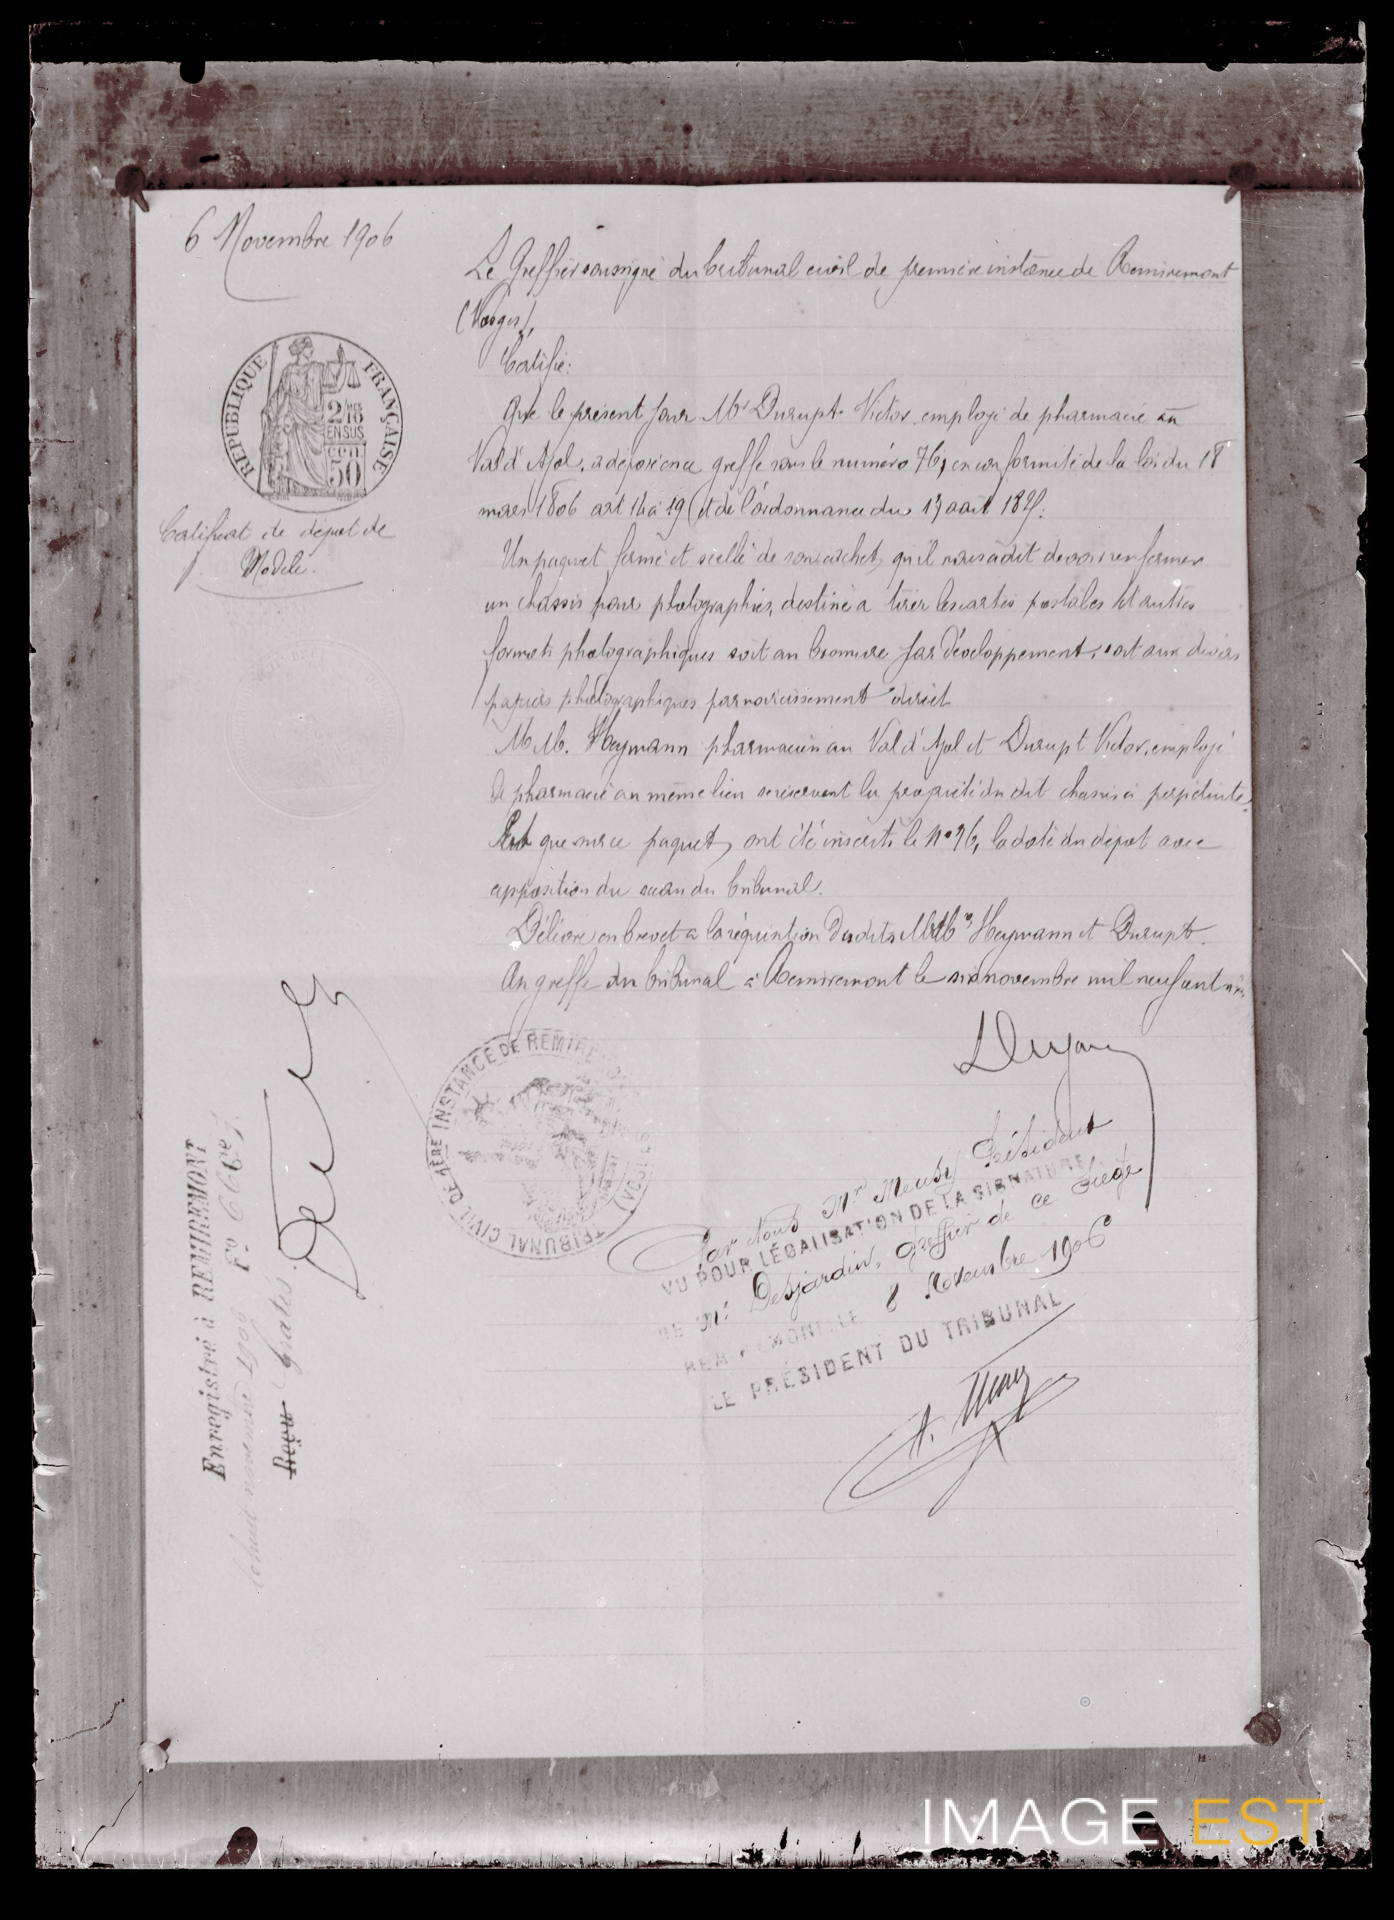 6 Novembre 1906
RÉPUBLIQUE FRANÇAISE
2/10
EN SUS
50
Certificat de dépôt de
Modèle.
Le Greffier soussigné du tribunal civil de première instance de Remiremont
(Vosges),
Certifie:
Que le présent jour Mr Durupt Victor, employé de pharmacie au
Val d'Ajol, a déposé en ce greffe sous le numéro 76, en conformité de la loi du 18
mars 1806 art 14 à 19 et de l'ordonnance du 17 août 1825.
Un paquet fermé et scellé de son cachet, qu'il nous a dit devoir renfermer
un chassis pour photographies, destiné à tirer les cartes postales et autres
formats photographiques soit au bromure par développement, soit aux divers
papiers photographiques par noircissement direct
MM. Heymann pharmacien au Val d'Ajol et Durupt Victor, employé
de pharmacie au même lieu se réservent la propriété du dit chassis à perpétuité.
que sur ce paquet, ont été inscrits le no 76, la date du dépôt avec
apposition du sceau du tribunal.
Délivré en brevet à la réquisition desdits MM Heymann et Durupt.
Au greffe du tribunal à Remiremont le six novembre mil neuf cent six
TRIBUNAL CIVIL DE 1ÈRE INSTANCE DE REMIRE (VOSGES)
Par Nous Mr Président
VU POUR LÉGALISATION DE LA SIGNATURE
DE Me Desjardin, Greffier de ce Siège
REMIREMONT, LE 8 Novembre 1906
LE PRÉSIDENT DU TRIBUNAL
Enregistré à REMIREMONT
Le huit novembre 1906 Fo 66
Reçu Gratis
IMAGE EST